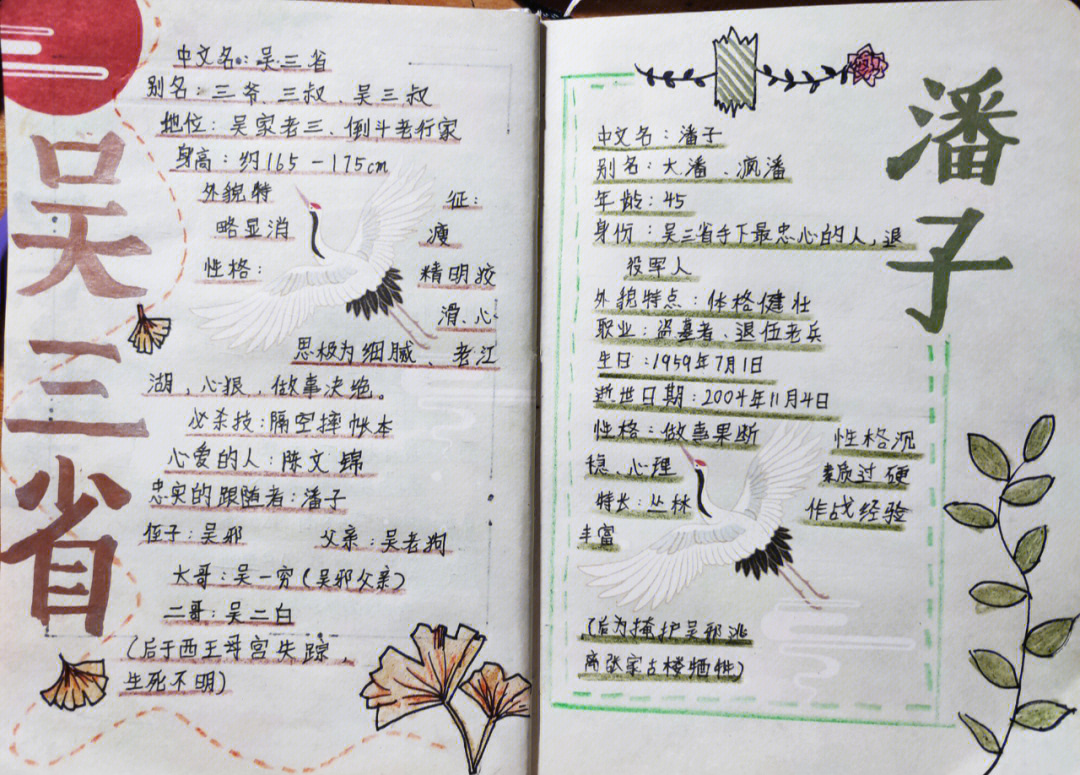 吴三省
中文名:吴三省
别名:三爷、三叔、吴三叔
地位:吴家老三、倒斗老行家
身高:约165-175cm
外貌特征:
略显消瘦
性格:精明狡
滑、心
思极为细腻、老江
湖,心狠,做事决绝。
必杀技:隔空摔帐本
心爱的人:陈文锦
忠实的跟随者:潘子
侄子:吴邪 父亲:吴老狗
大哥:吴一穷(吴邪父亲)
二哥:吴二白
(后于西王母宫失踪,
生死不明)
潘子
中文名:潘子
别名:大潘、疯潘
年龄:45
身份:吴三省手下最忠心的人,退
役军人
外貌特点:体格健壮
职业:盗墓者、退伍老兵
生日:1959年7月1日
逝世日期:2004年11月4日
性格:做事果断 性格沉
稳、心理 素质过硬
特长:丛林 作战经验
丰富
(后为掩护吴邪逃
离张家古楼牺牲)